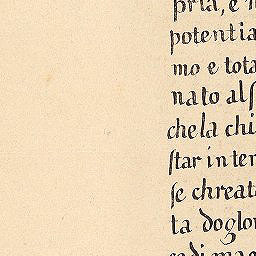 pria, e
potentia
mo e tota
nato alſ
chela chi
ſtar in ter
ſe chreat
ta doglo